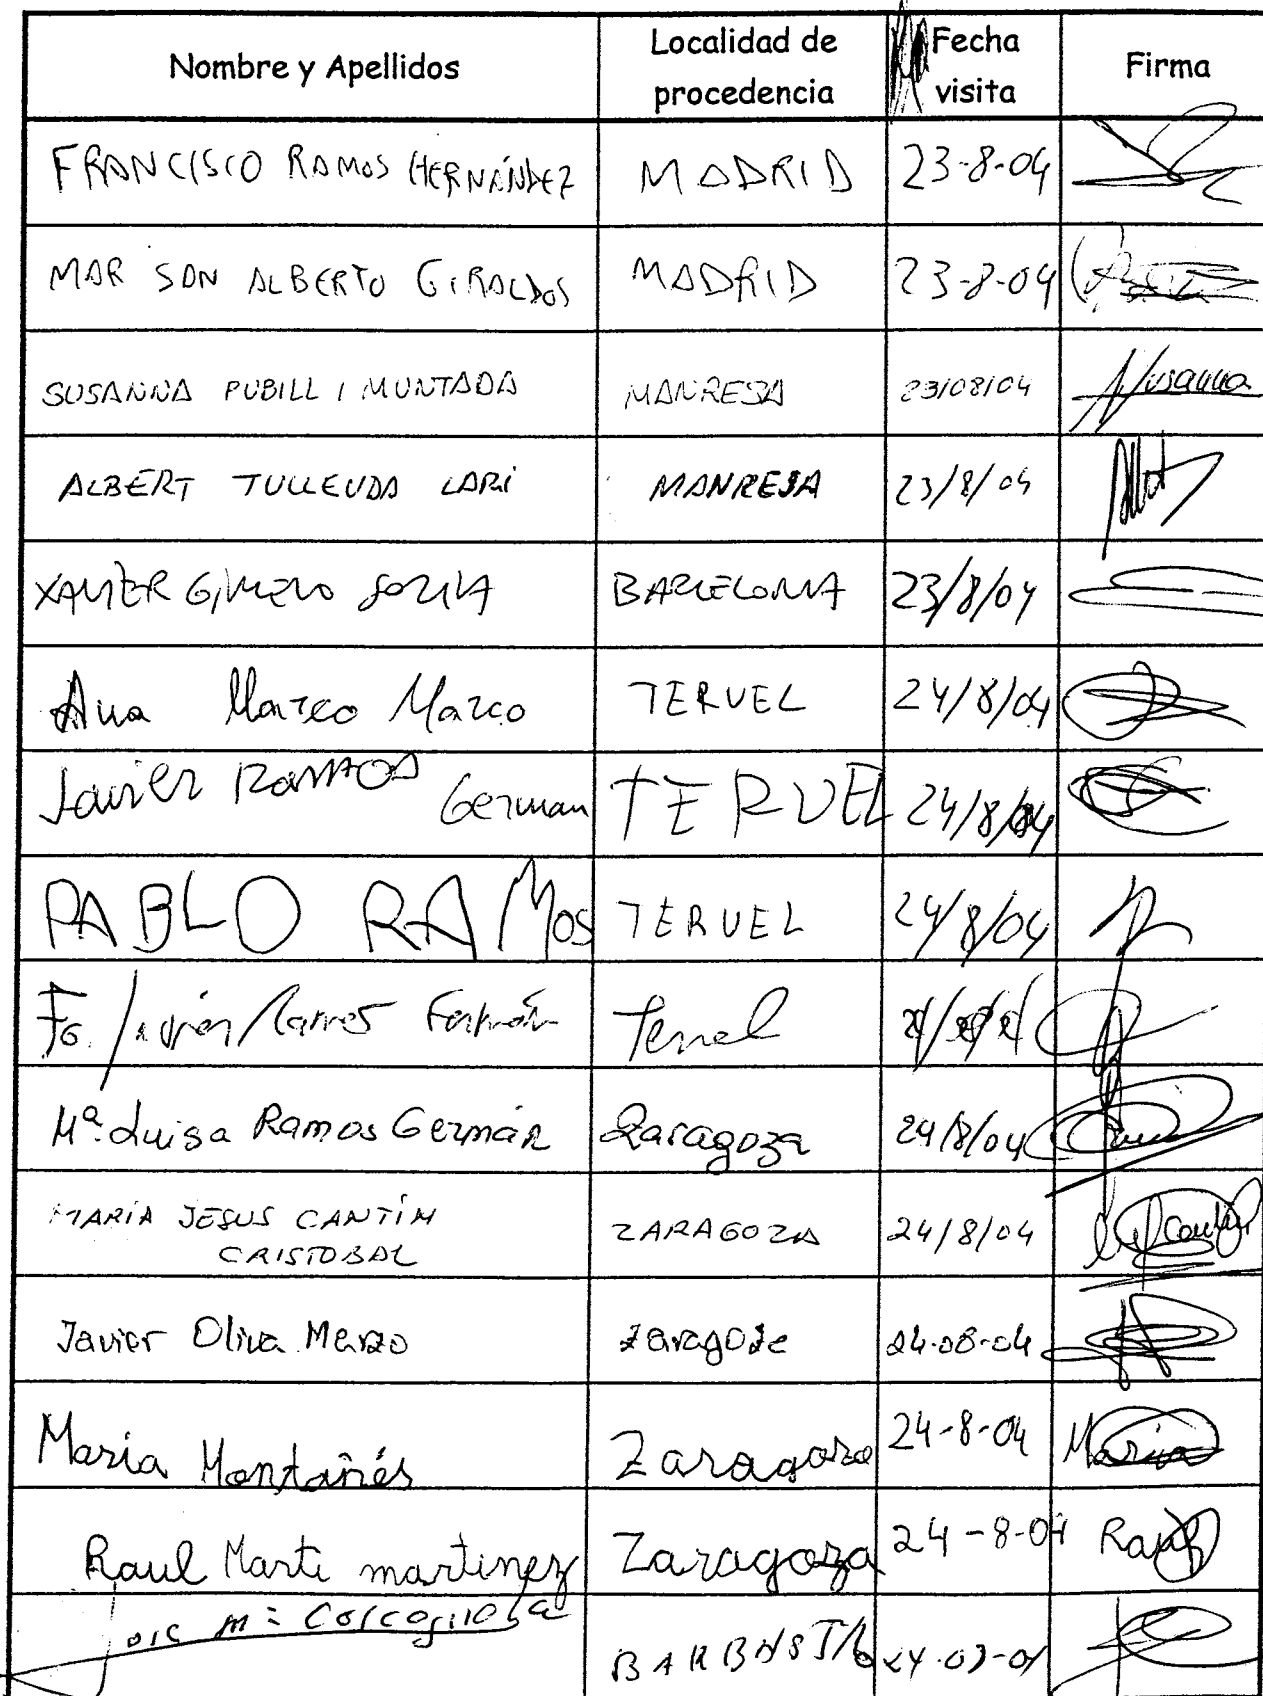 Nombre y Apellidos Localidad de procedencia Fecha visita Firma
FRANCISCO RAMOS HERNÁNDEZ MADRID 23-8-04
MAR SAN ALBERTO GIRALDOS MADRID 23-8-04
SUSANNA PUBILL I MUNTADA MANRESA 23/08/04 Susanna
ALBERT TULLEUDA LARI MANRESA 23/8/04 Albert
XAVIER GIMENO BARCELONA 23/8/04
Ana Marco Marco TERUEL 24/8/04
Javier RAMOS German TERUEL 24/8/04
PABLO RAMOS TERUEL 24/8/04
Fo. Javier Ramos Teruel
Mª. Luisa Ramos Germán Zaragoza 24/8/04
MARÍA JESUS CANTÍN
CRISTOBAL ZARAGOZA 24/8/04
Javier Oliva Merzo Zaragoza 24-08-04
María Montañés Zaragoza 24-8-04 Maria
Raul Marti martinez Zaragoza 24-8-04 Raul
BARBASTRO